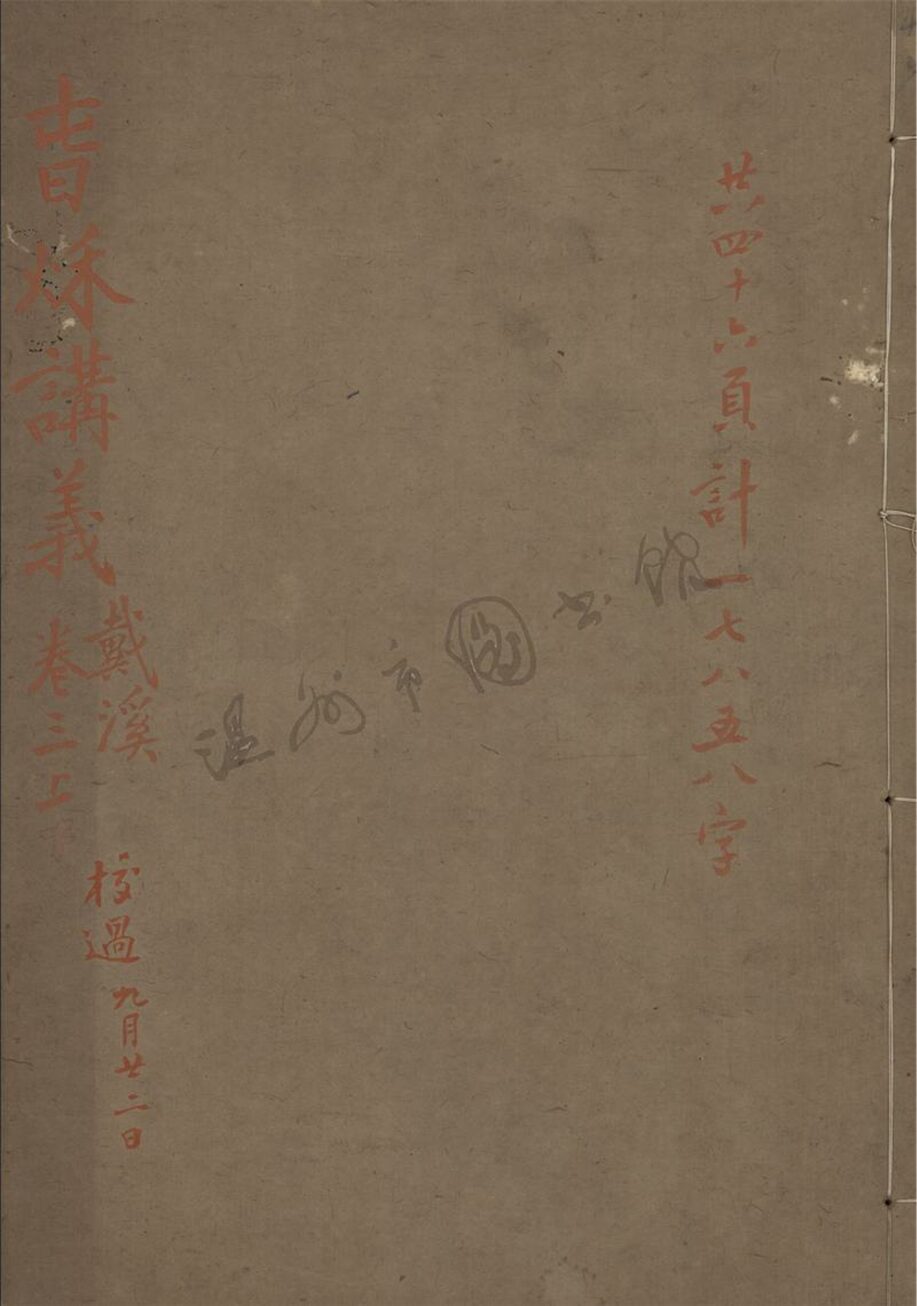 共四十六頁計一七八五八字
温州市圖书馆
戴溪
校過九月廿二日
旾秌講義卷三上